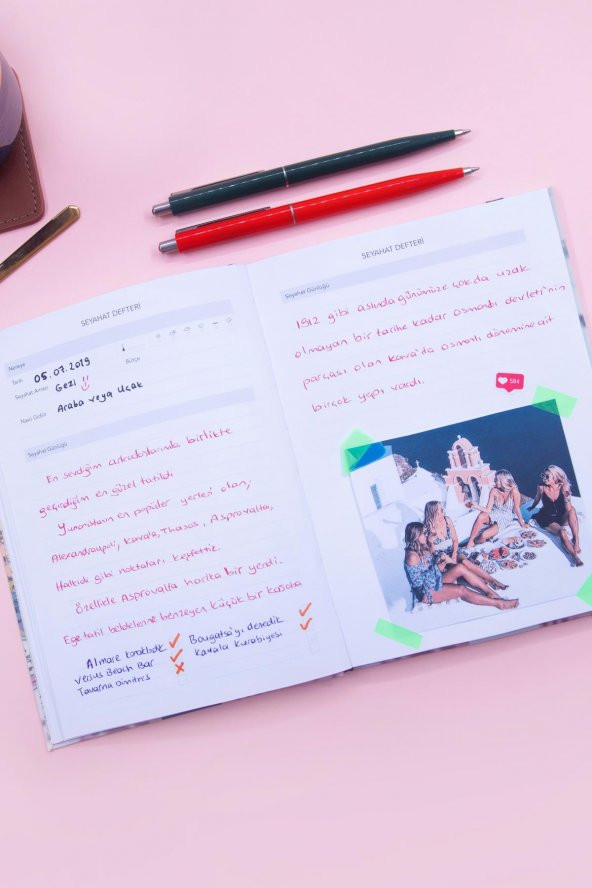 SEYAHAT DEFTERİ
Nereye
Tarih 05.07.2019 Bütçe
Seyahat Amacı Gezi !!
Nasıl Gidilir Araba veya Uçak
Seyahat Günlüğü
En sevdiğim arkadaşlarımla birlikte
geçirdiğim en güzel tatildi
Yunanistan'ın en popüler yerleri olan;
Alexandroupoli, Kavala, Thasos, Asprovalta,
Halkidi gibi noktaları keşfettik.
Özellikle Asprovalta harika bir yerdi.
Ege tatil beldelerine benzeyen küçük bir kasaba
Almare konakladık ✓
versus Beach Bar ✓
Taverna Dimitris ✗
Bougatsa'yı denedik ✓
Kavala kurabiyesi ✓
SEYAHAT DEFTERİ
Seyahat Günlüğü
1912 gibi aslında günümüze çok da uzak
olmayan bir tarihe kadar osmanlı devleti'nin
parçası olan Kavala'da osmanlı dönemine ait
birçok yapı vardı.
584